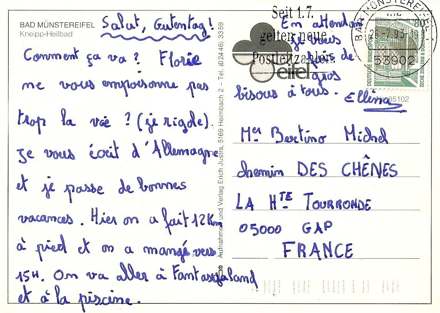 BAD MÜNSTEREIFEL
Kneipp-Heilbad
Salut, Gutentag!
Comment ça va? Florie
ne vous empoisonne pas
trop la vie? (je rigole).
Je vous écrit d'Allemagne
et je passe de bonnes
vacances. Hier on a fait 12 Km
à pied et on a mangé vers
15H. On va aller à Fantasialand
et à la piscine.
En attendant
je vous
fais de
gros
bisous à tous. Ellina
Seit 1.7.
gelten neue
Postleitzahlen
Eifel
BAD MÜNSTEREIFEL
53902
80
Mer Bertino Michel
chemin DES CHÊNES
LA HTE TOURRONDE
05000 GAP
FRANCE